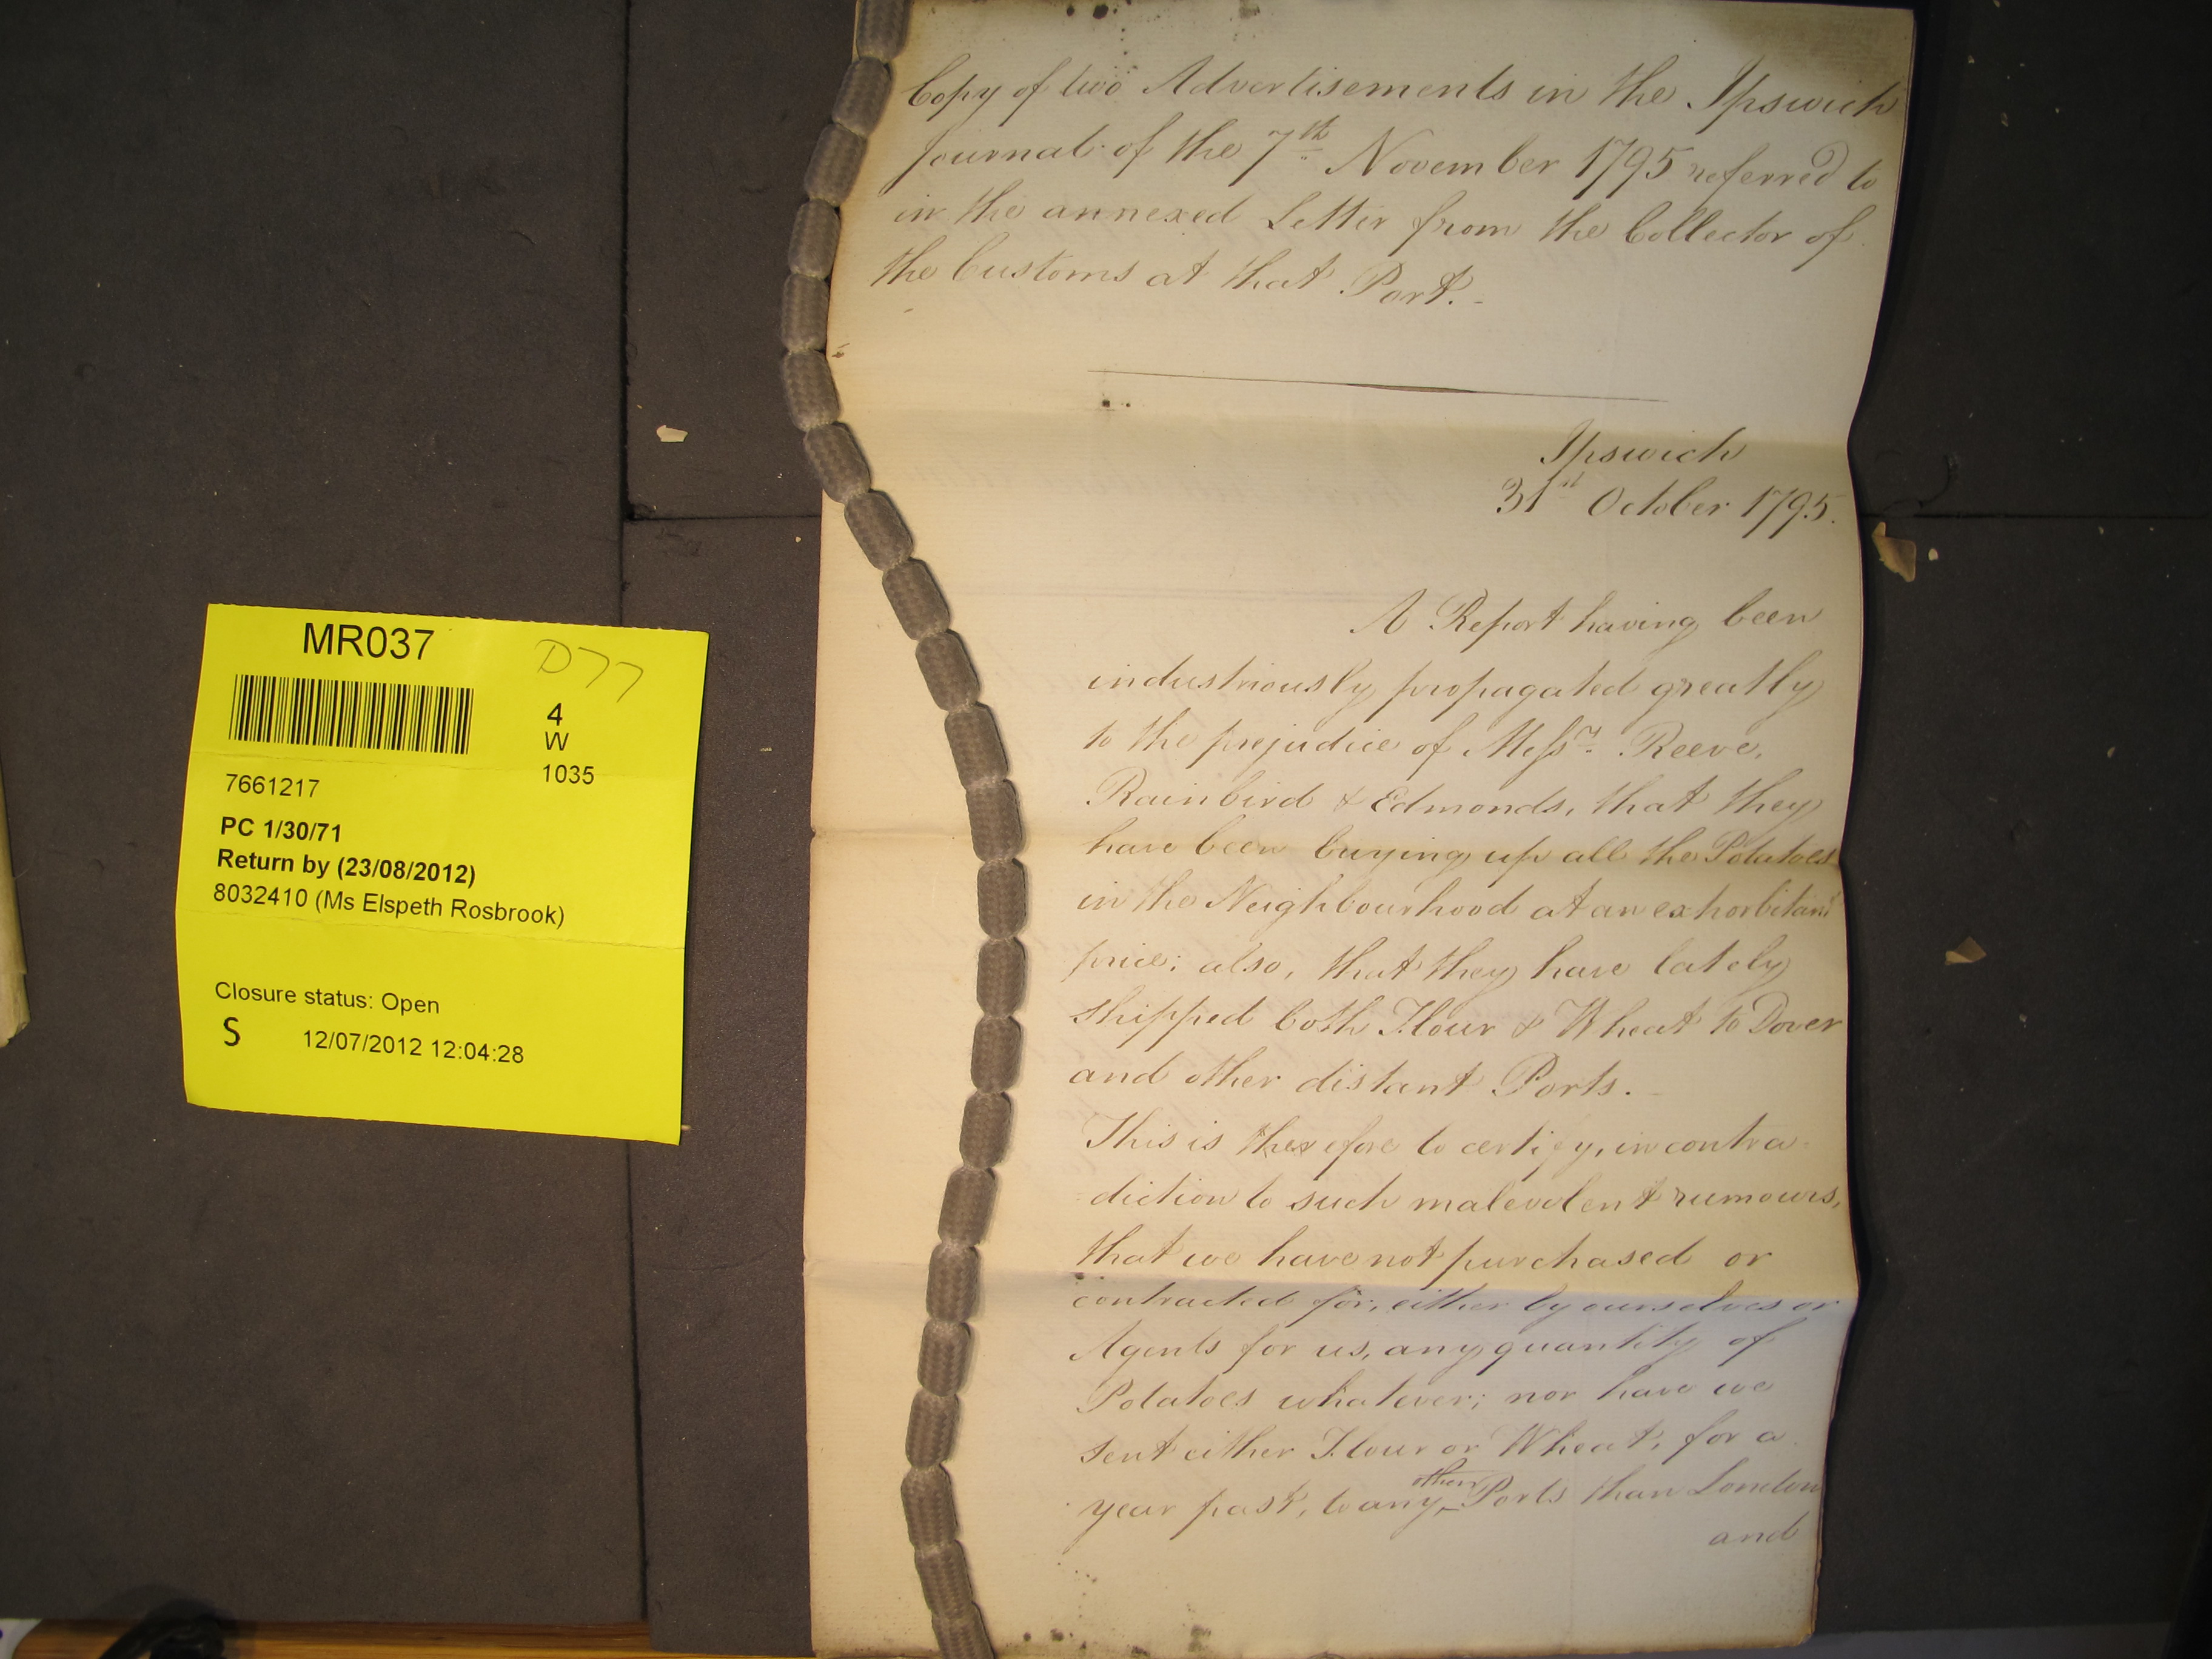 Copy of two Advertisements in the Ipswich
Journal of the 7th November 1795 referred to
in the annexed Letter from the Collector of
the Customs at that Port.
Ipswich
31st October 1795.
A Report having been
industriously propagated greatly
to the prejudice of Messrs. Reeve,
Rainbird & Edmonds, that they
have been buying up all the Potatoes
in the Neighbourhood at an exhorbitant
price; also, that they have lately
shipped both Flour & Wheat to Dover
and other distant Ports.
This is therefore to certify, in contra-
diction to such malevolent rumours,
that we have not purchased or
contracted for, either by ourselves or
Agents for us, any quantity of
Potatoes whatever; nor have we
sent either Flour or Wheat, for a
year past, to any other Ports than London
and
MR037
D77
4
W
1035
7661217
PC 1/30/71
Return by (23/08/2012)
8032410 (Ms Elspeth Rosbrook)
Closure status: Open
S 12/07/2012 12:04:28